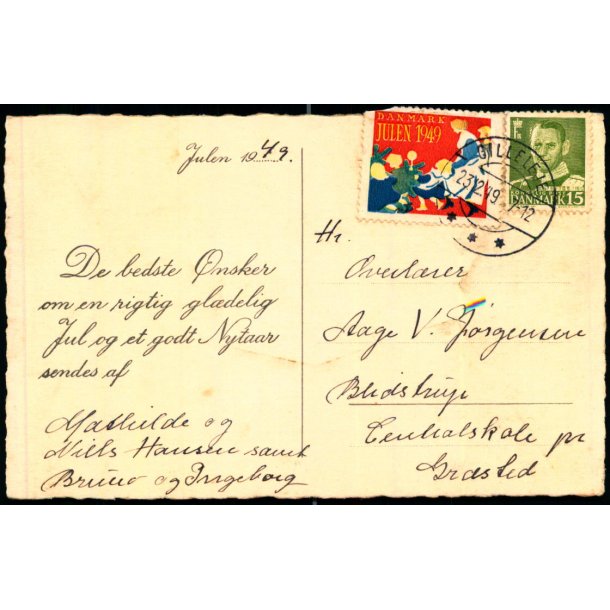 Julen 1949.
De bedste Ønsker
om en rigtig glædelig
Jul og et godt Nytaar
sendes af
Mathilde og
Niels Hansen samt
Bruno og Ingeborg
DANMARK
JULEN 1949
DANMARK 15
GILLELEJE
23.12.49
-12
Hr.
Overlærer
Aage V. Jørgensen
Blidstrup
Centralskole pr
Græsted